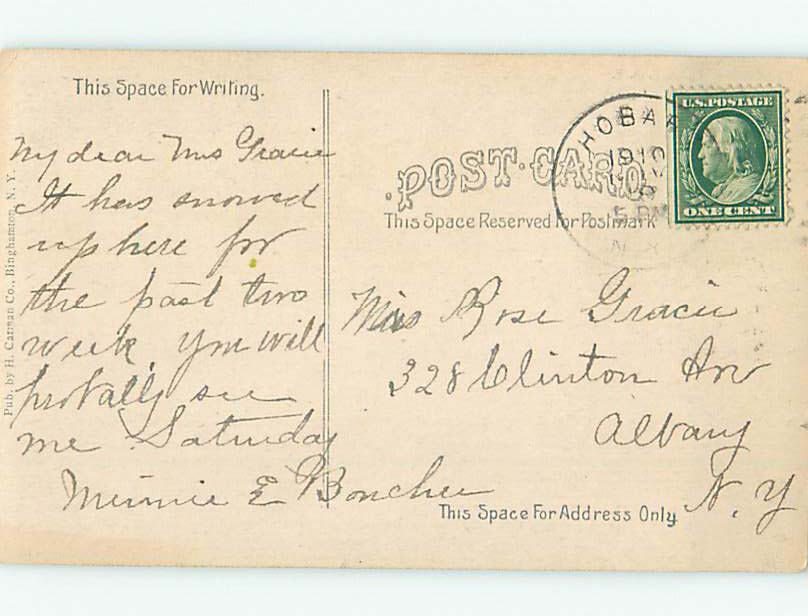 This Space For Writing.
My dear Mrs Gracie
It has snowed
up here for
the past two
week you will
probally see
me Saturday
Minnie E
Pub. by H. Carman Co., Binghamton, N. Y.
POST-CARD
This Space Reserved for Postmark
HOBA
1910
5 PM
N.Y.
U.S. POSTAGE
ONE CENT
Miss Rose Gracie
328 Clinton Av
Albany
N.Y
This Space For Address Only